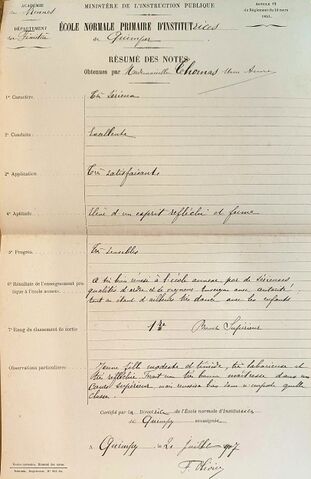 ACADÉMIE
de Rennes
DÉPARTEMENT
du Finistère
MINISTÈRE DE L'INSTRUCTION PUBLIQUE
ARTICLE 71
du Règlement du 24 mars
1851.
ÉCOLE NORMALE PRIMAIRE D'INSTITUTrices
de Quimper
RÉSUMÉ DES NOTES
Obtenues par Mademoiselle Thomas Anne
1° Caractère. Très sérieux
2° Conduite. Excellente
3° Application Très satisfaisante
4° Aptitude. Élève d'un esprit réfléchi et ferme
5° Progrès. Très sensibles
6° Résultats de l'enseignement pratique à l'école annexe.
A très bien réussi à l'école annexe par de sérieuses
qualités d'ordre et de enseigne avec autorité
tout en étant d'ailleurs très douce avec les enfants
7° Rang du classement de sortie 1ère Brevet Supérieur
Observations particulières.
Jeune fille modeste et timide, très laborieuse et
très réfléchie. Ferait une très bonne maîtresse dans un
Cours supérieur, mais réussira bien dans n'importe quelle
classe.
Certifié par la Directrice de l'École normale d'Institutrices
de Quimper soussignée
A Quimper 20 Juillet 1907